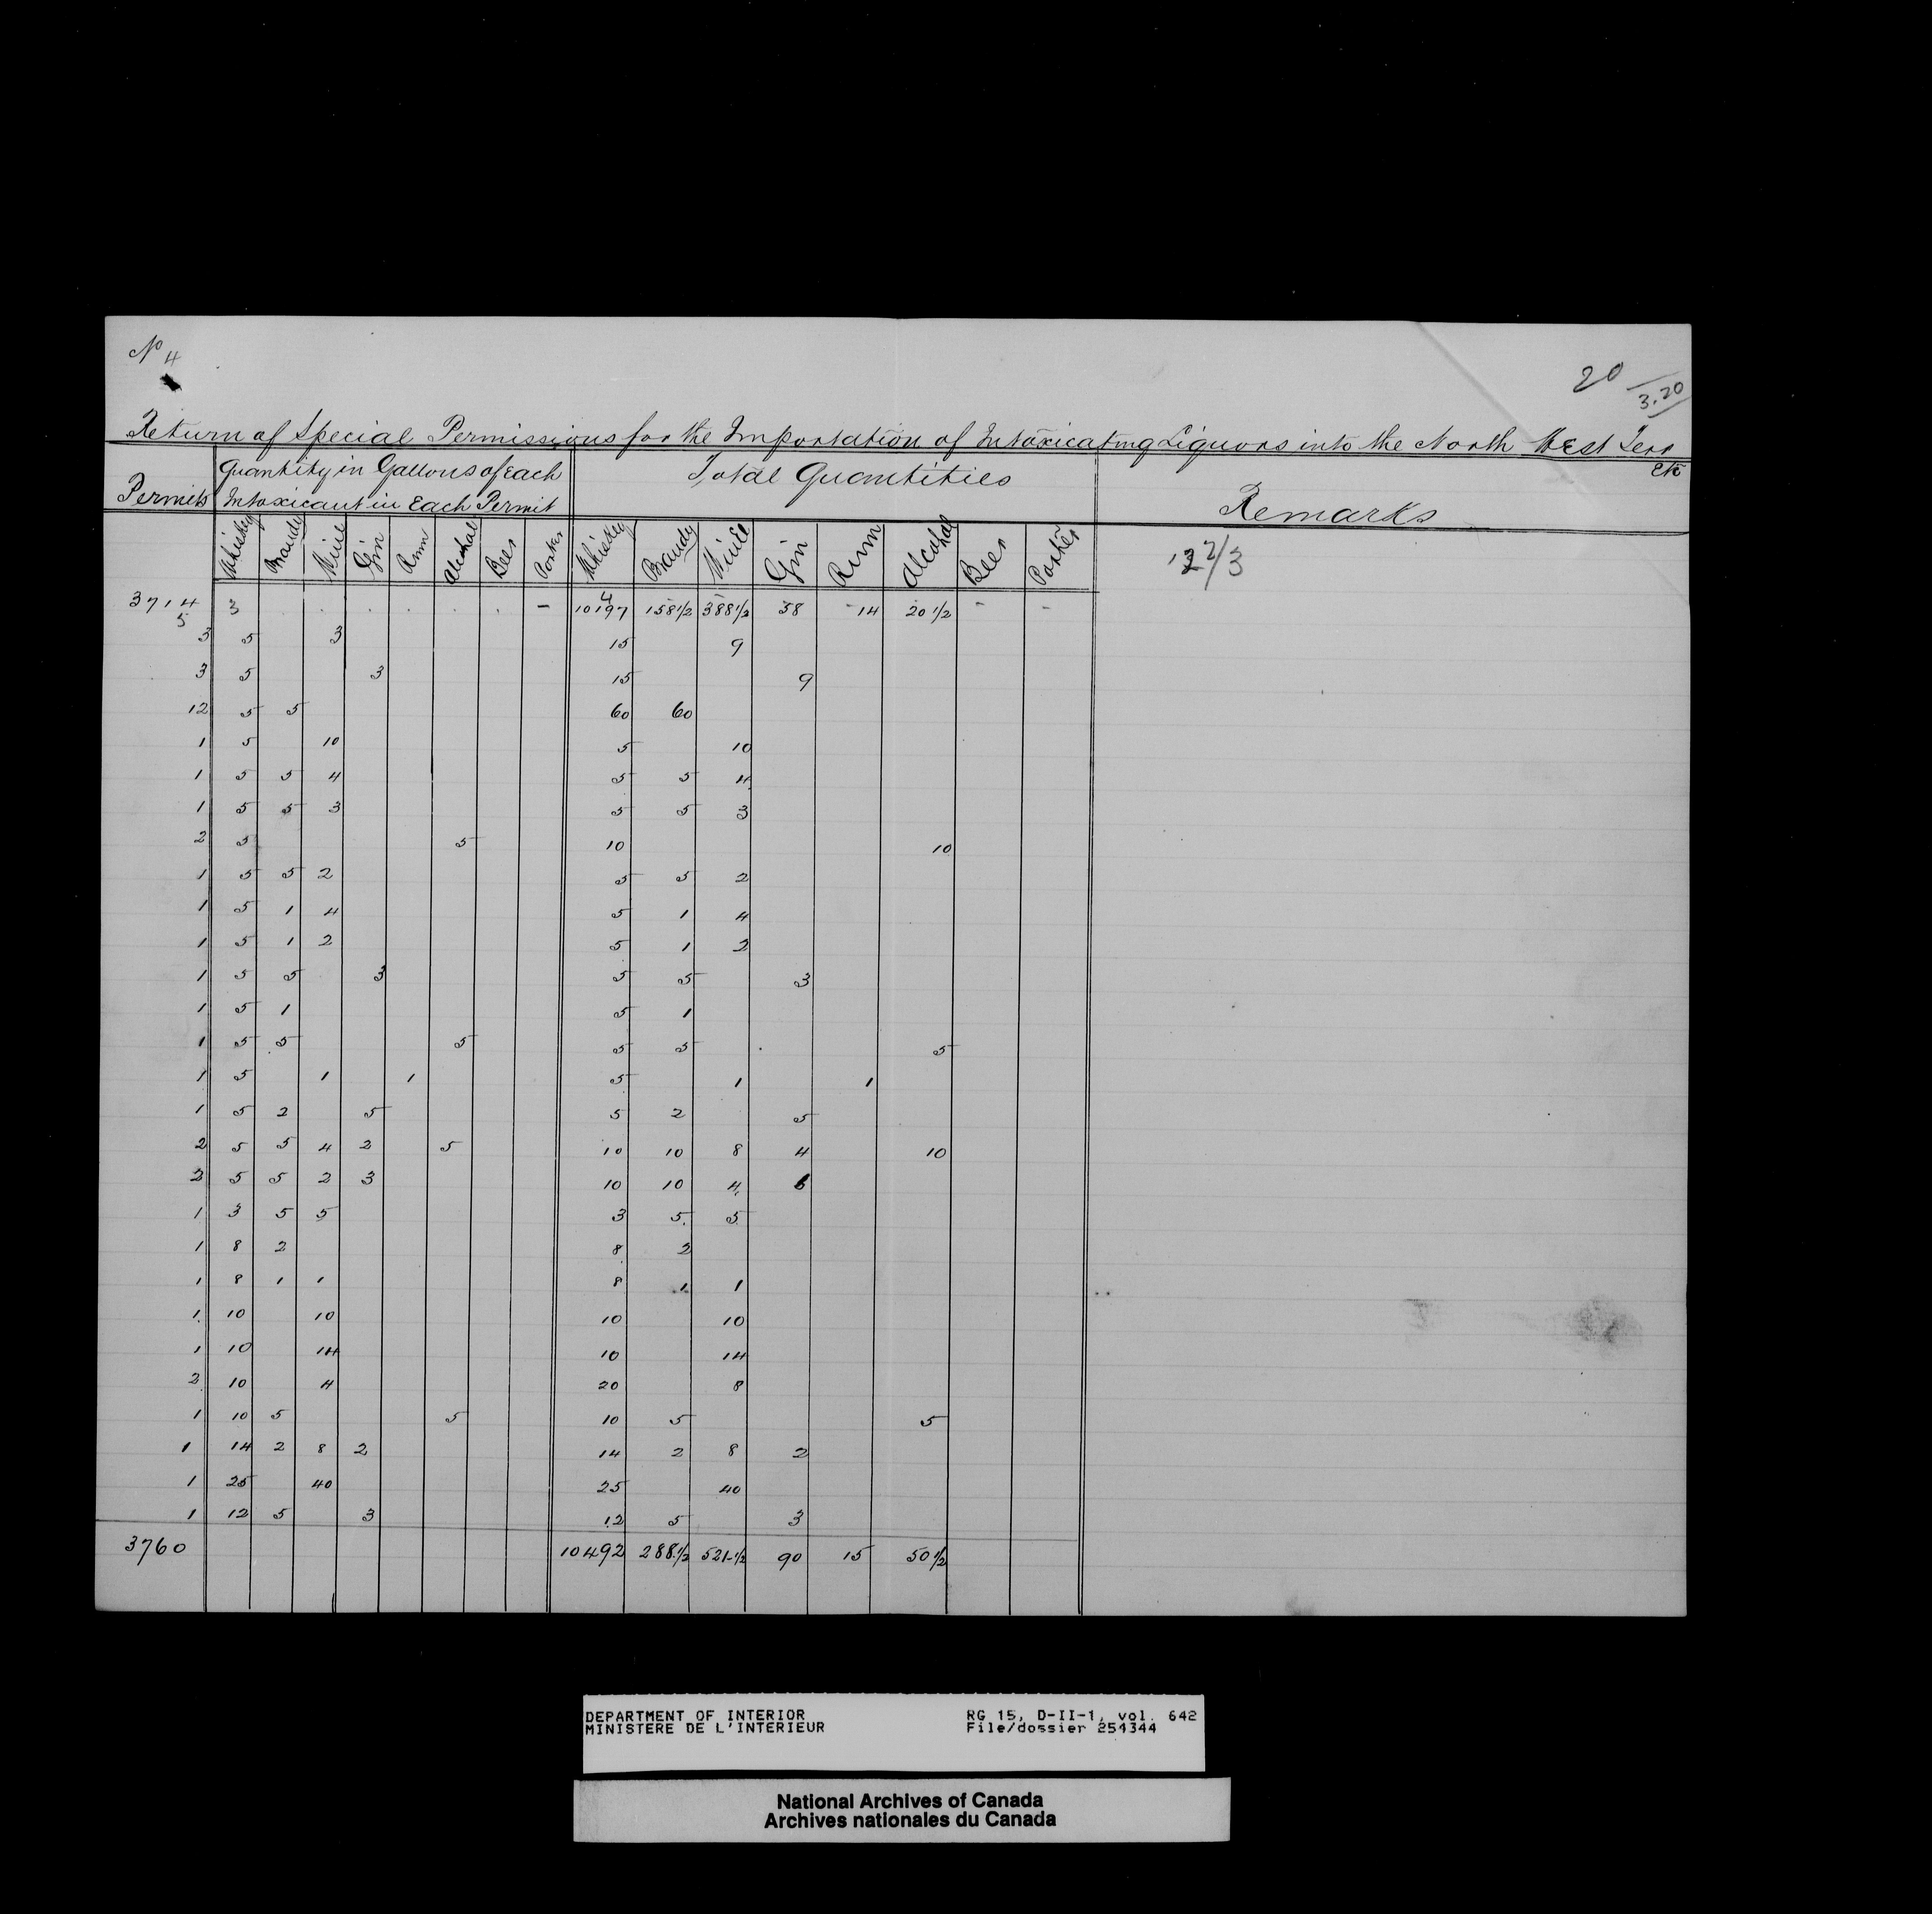 No 4
20
3.20
Return of Special Permissions for the Importation of Intoxicating Liquors into the North West Terr
Etc
Permits Quantity in Gallons of Each Intoxicant in Each Permit Total Quantities Remarks
Whiskey Brandy Wine Gin Rum Alcohol Beer Porter Whiskey Brandy Wine Gin Rum Alcohol Beer Porter
2/3
3714 3 - 10197 158 1/2 388 1/2 58 14 20 1/2 - -
5
3 5 3 15 9
3 5 3 15 9
12 5 5 60 60
1 5 10 5 10
1 5 5 4 5 5 4
1 5 5 3 5 5 3
2 5 5 10 10
1 5 5 2 5 5 2
1 5 1 4 5 1 4
1 5 1 2 5 1 2
1 5 5 3 5 5 3
1 5 1 5 1
1 5 5 5 5 5 5
1 5 1 1 5 1 1
1 5 2 5 5 2 5
2 5 5 4 2 5 10 10 8 4 10
2 5 5 2 3 10 10 4 6
1 3 5 5 3 5 5
1 8 2 8 2
1 8 1 1 8 1 1
1 10 10 10 10
1 10 14 10 14
2 10 4 20 8
1 10 5 5 10 5 5
1 14 2 8 2 14 2 8 2
1 25 40 25 40
1 12 5 3 12 5 3
3760 10492 288 1/2 521 1/2 90 15 50 1/2
DEPARTMENT OF INTERIOR RG 15, D-II-1, vol. 642
MINISTERE DE L'INTERIEUR File/dossier 254344
National Archives of Canada
Archives nationales du Canada